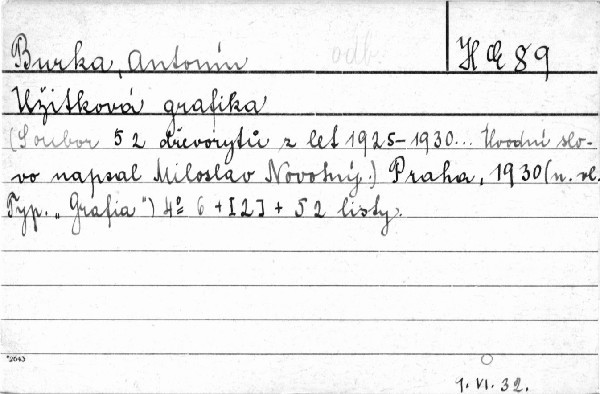 Burka, Antonín odb. H Œ 89
Užitková grafika
(Soubor 52 dřevorytů z let 1925-1930... Úvodní slo-
vo napsal Miloslav Novotný.) Praha, 1930 (n. vl.
Typ. „Grafia") 4º 6 + [2] + 52 listy.
*2643
1. VI. 32.